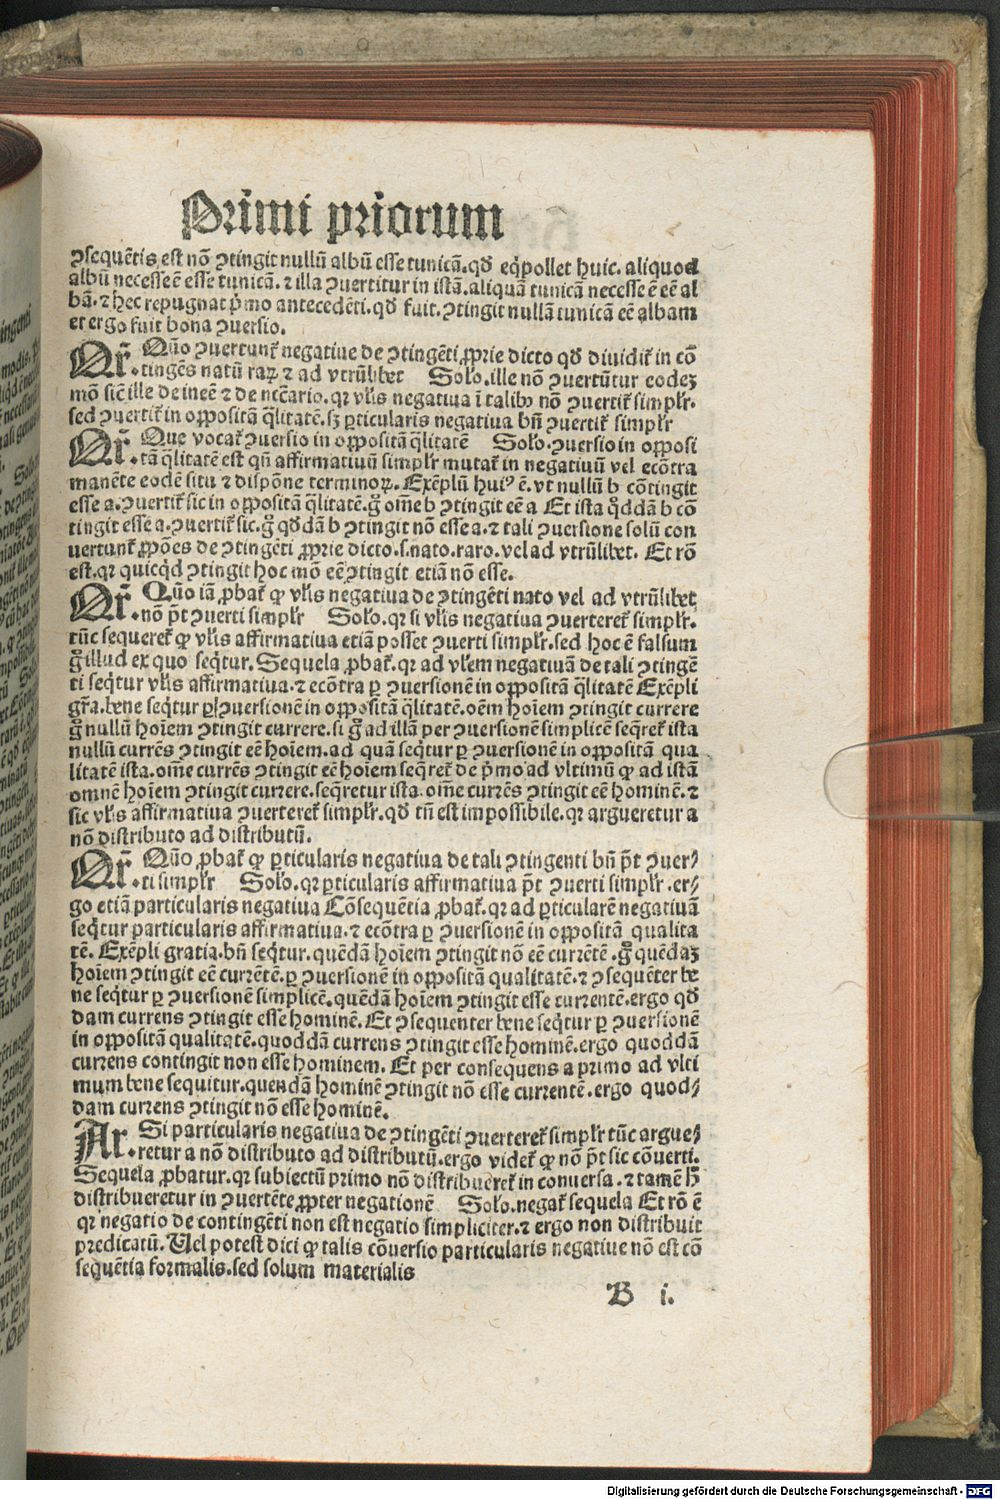 Primi priorum
ꝯsequētis est nō ꝯtingit nullū albū esse tunicā.qd̄ eq̄pollet huic. aliquod
albū necesse ē esse tunicā.⁊ illa ꝯuertitur in istā.aliquā tunicā necesse ē eē al
bā.⁊ hec repugnat p̄mo antecedēti.qd̄ fuit.ꝯtingit nullā tunicā eē albam
et ergo fuit bona ꝯuersio.
Qr̄. Quō ꝯuertunt᷑ negatiue de ꝯtingēti ꝓprie dicto qd̄ diuidit᷑ in cō
tingēs natū raꝝ ⁊ ad vtrūlibet Solō.ille nō ꝯuertūtur eodeꝫ
mō sic̄ ille de ineē ⁊ de nc̄cario.qꝛ vl̄is negatiua ī talibꝰ nō ꝯuertit᷑ simpl̄r.
sed ꝯuertit᷑ in oppositā q̄litatē.sꝫ ꝑticularis negatiua bn̄ ꝯuertit᷑ simpl̄r
Qr̄. Que vocat᷑ ꝯuersio in oppositā q̄litatē Solō.ꝯuersio in opposi
tā q̄litatē est qn̄ affirmatiuū simpl̄r mutat᷑ in negatiuū vel ecōtra
manēte eodē situ ⁊ dispōne terminoꝝ. Exēplū huiꝰ ē.vt nullū b cōtingit
esse a.ꝯuertit᷑ sic in oppositā q̄litatē.g̊ om̄e b ꝯtingit eē a Et ista q̊ddā b cō
tingit esse a.ꝯuertit᷑ sic.g̊ qd̄dā b ꝯtingit nō esse a.⁊ tali ꝯuersione solū con
uertunt᷑ ꝓpōes de ꝯtingēti ꝓprie dicto.s.nato.raro.vel ad vtrūlibet. Et rō
est.qꝛ quicq̄d ꝯtingit hoc mō eē ꝯtingit etiā nō esse.
Qr̄. Quō iā ꝓbat᷑ ꝙ vl̄is negatiua de ꝯtingēti nato vel ad vtrūlibet
nō p̄t ꝯuerti simpl̄r Solō.qꝛ si vl̄is negatiua ꝯuerteret᷑ simpl̄r.
tūc sequeret᷑ ꝙ vl̄is affirmatiua etiā posset ꝯuerti simpl̄r.sed hoc ē falsum
g̊ illud ex quo seq̄tur. Sequela ꝓbat᷑.qꝛ ad vl̄em negatiuā de tali ꝯtingē
ti seq̄tur vl̄is affirmatiua.⁊ ecōtra ꝑ ꝯuersionē in oppositā q̄litatē Exēpli
gr̄a.bene seq̄tur ꝑ ꝯuersionē in oppositā q̄litatē.oēm hoīem ꝯtingit currere
g̊ nullū hoīem ꝯtingit currere.si g̊ ad illā per ꝯuersionē simplicē seq̄ret᷑ ista
nullū currēs ꝯtingit eē hoīem.ad quā seq̄tur ꝑ ꝯuersionē in oppositā qua
litatē ista.om̄e currēs ꝯtingit eē hoīem seq̄ret᷑ de p̄mo ad vltimū ꝙ ad istā
omnē hoīem ꝯtingit currere.seq̄retur ista.om̄e currēs ꝯtingit eē hominē.⁊
sic vl̄is affirmatiua ꝯuerteret᷑ simpl̄r.qd̄ tn̄ est impossibile.qꝛ argueretur a
nō distributo ad distributū.
Qr̄. Quō ꝓbat᷑ ꝙ ꝑticularis negatiua de tali ꝯtingenti bn̄ p̄t ꝯuer⸗
ti simpl̄r Solō.qꝛ ꝑticularis affirmatiua p̄t ꝯuerti simpl̄r.er⸗
go etiā particularis negatiua Cōsequētia ꝓbat᷑.qꝛ ad ꝑticularē negatiuā
seq̄tur particularis affirmatiua.⁊ ecōtra ꝑ ꝯuersionē in oppositā qualita
tē. Exēpli gratia.bn̄ seq̄tur.quēdā hoīem ꝯtingit nō eē currētē.g̊ quēdaꝫ
hoīem ꝯtingit eē currētē.ꝑ ꝯuersionē in oppositā qualitatē.⁊ ꝯsequēter be
ne seq̄tur ꝑ ꝯuersionē simplicē.quēdā hoīem ꝯtingit esse currentē.ergo qd̄
dam currens ꝯtingit esse hominē. Et ꝯsequenter bene seq̄tur ꝑ ꝯuersionē
in oppositā qualitatē.quoddā currens ꝯtingit esse hominē.ergo quoddā
currens contingit non esse hominem. Et per consequens a primo ad vlti
mum bene sequitur.quendā hominē ꝯtingit nō esse currentē.ergo quod⸗
dam currens ꝯtingit nō esse hominē.
Ar. Si particularis negatiua de ꝯtingēti ꝯuerteret᷑ simpl̄r tūc argue⸗
retur a nō distributo ad distributū.ergo videt᷑ ꝙ nō p̄t sic cōuerti.
Sequela ꝓbatur.qꝛ subiectū primo nō distribueret᷑ in conuersa.⁊ tamē hꝫ
distribueretur in ꝯuertēte ꝓpter negationē Solō.negat᷑ sequela Et rō ē
qꝛ negatio de contingēti non est negatio simpliciter.⁊ ergo non distribuit
predicatū. Uel potest dici ꝙ talis cōuersio particularis negatiue nō est cō
sequētia formalis.sed solum materialis
B i.
Digitalisierung gefördert durch die Deutsche Forschungsgemeinschaft - DFG